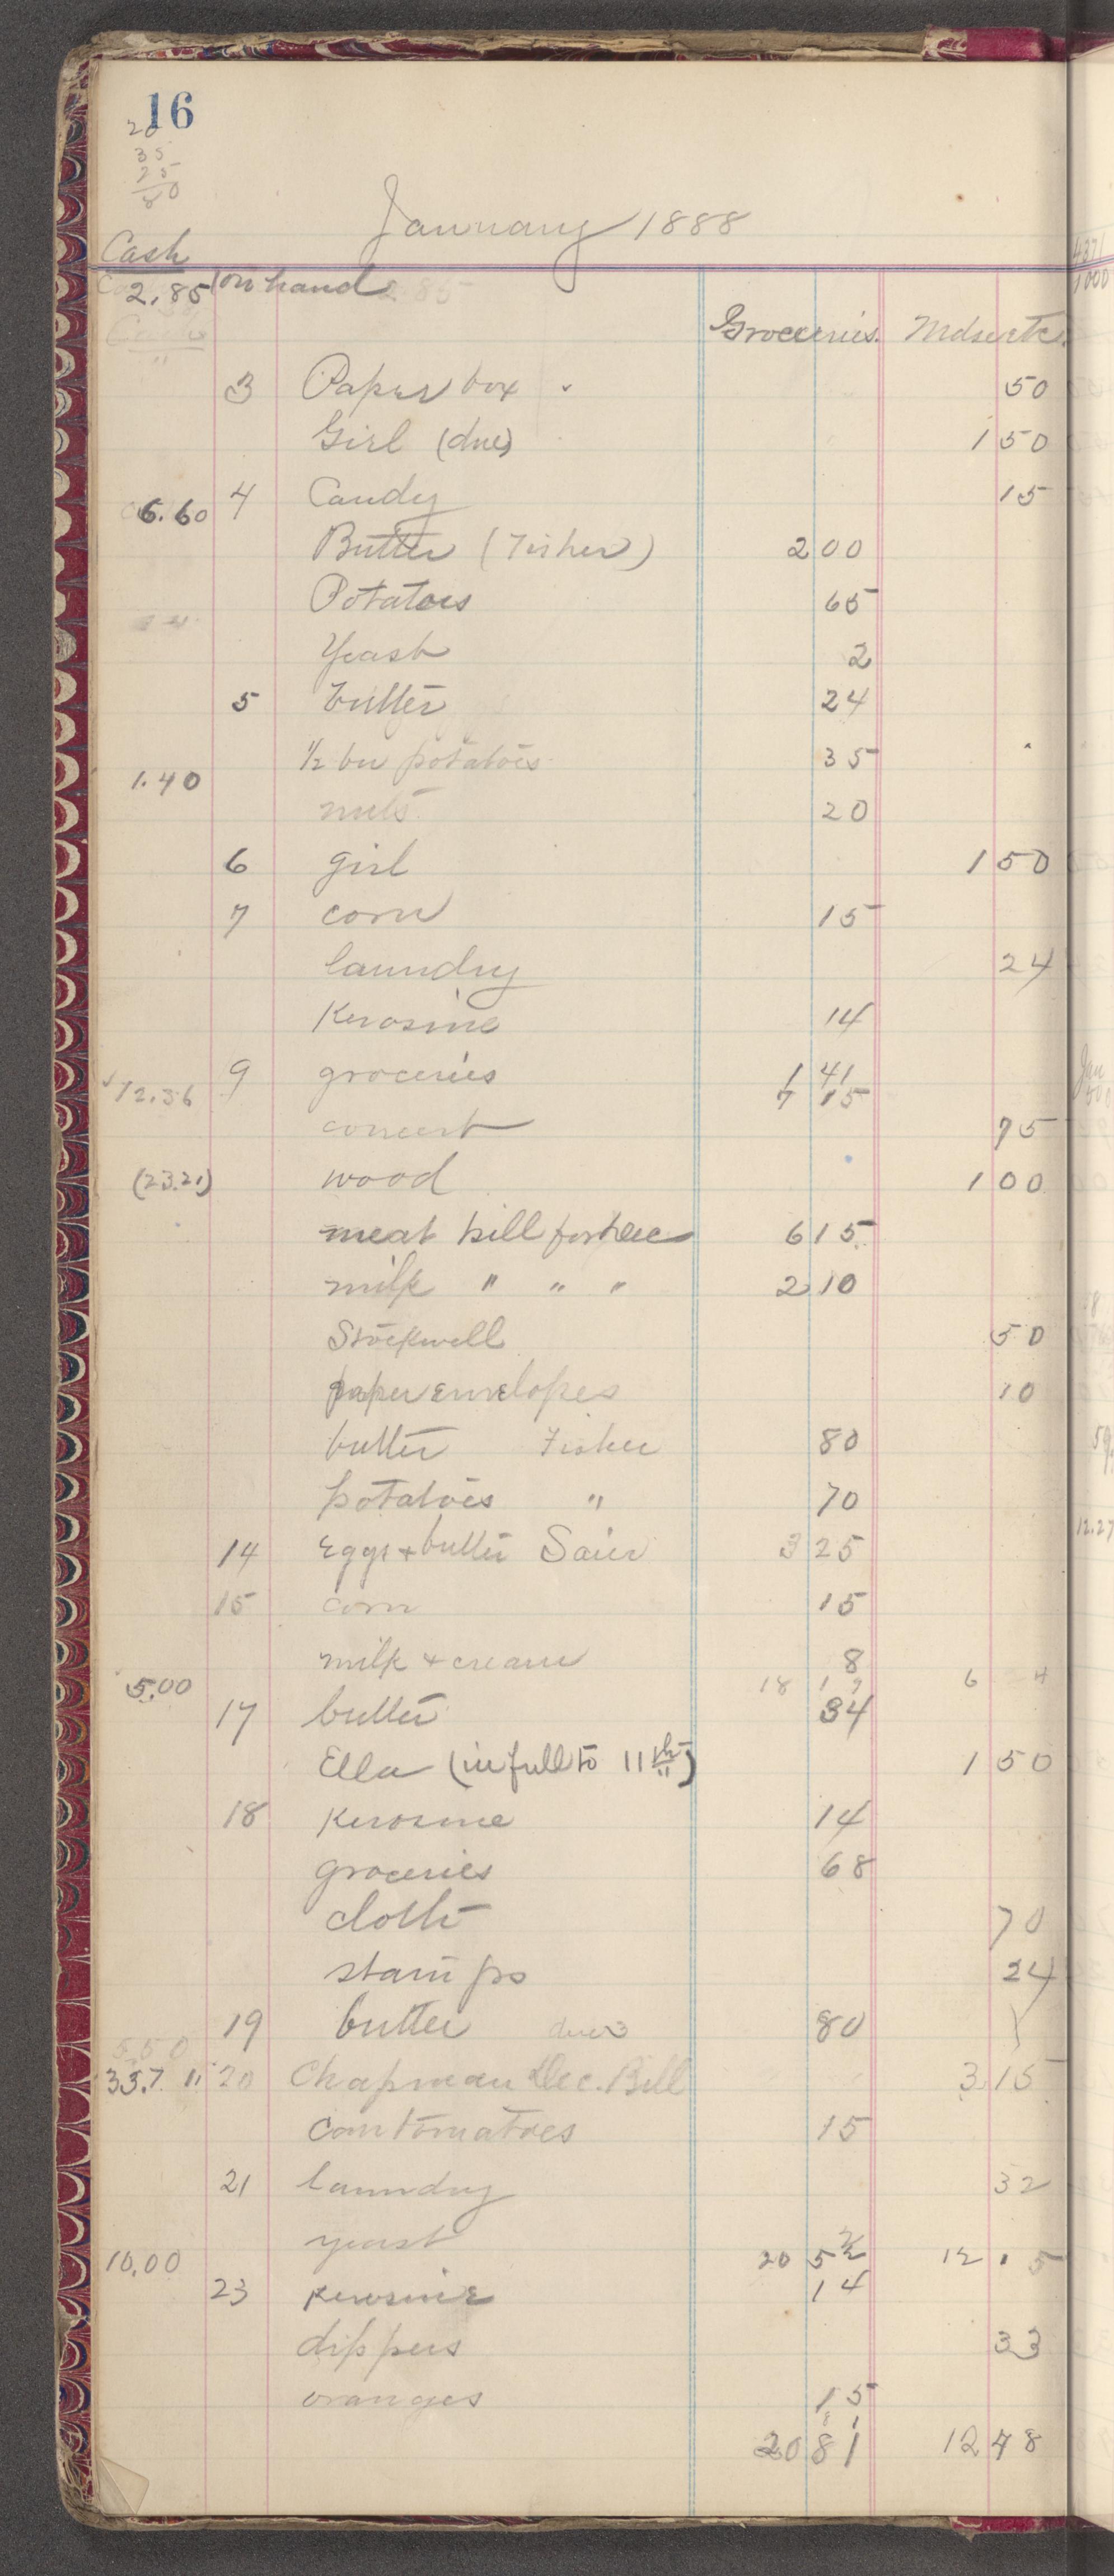 16
20
35
25
80
January 1888
Cash
2.85 on hand
Groceries. Mdse etc.
3 Paper box 50
Girl (due) 1 50
4 Candy 15
6.60
Butter (Fisher) 2 00
Potatoes 65
Yeast 2
5 butter 24
1/2 bu potatoes 35
1.40
nuts 20
6 girl 1 50
7 corn 15
laundry 24
Kerosine 14
9 groceries 1 41
12.36 7 15
concert 75
(23.21) wood 1 00
meat bill for Dec 6 15
milk " " " 2 10
Stockwell 50
paper envelopes 10
butter Fisher 80
potatoes " 70
14 Eggs + butter Saier 3 25
15 corn 15
milk + cream 8
5.00
17 butter 34
Ella (in full to 11th) 1 50
18 Kerosine 14
groceries 68
cloth 70
stamps 24
19 butter 80
5.50
33.7 11 20 Chapman Dec. Bill 3 15
corn tomatoes 15
21 laundry 32
yeast 2
10.00 20 5 1/2 12 . 5
23 Kerosine 14
dippers 33
oranges 15
20 81 12 48